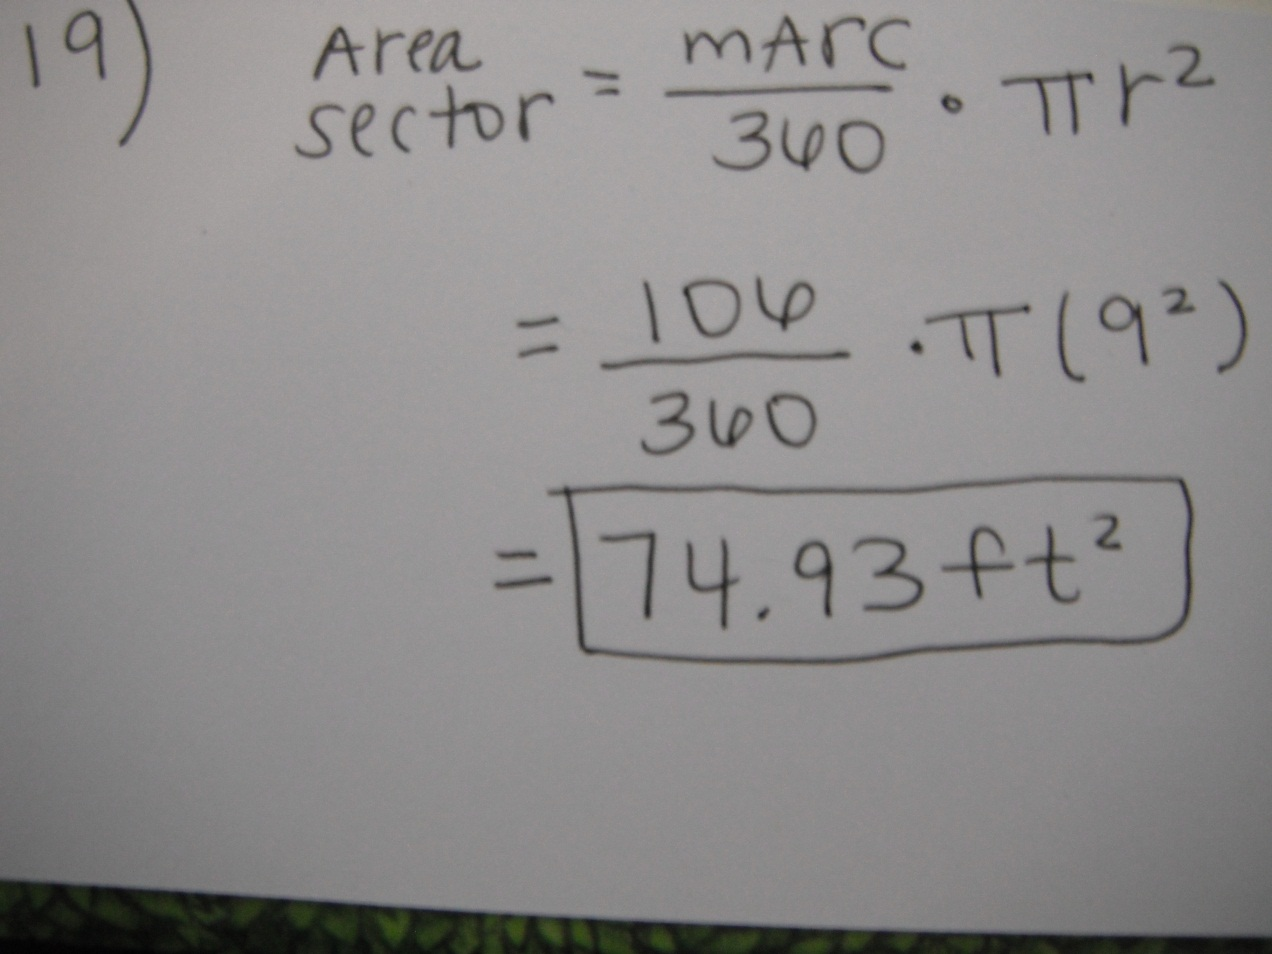 19) Area sector = mArc/360 · πr²
= 106/360 · π(9²)
= 74.93 ft²